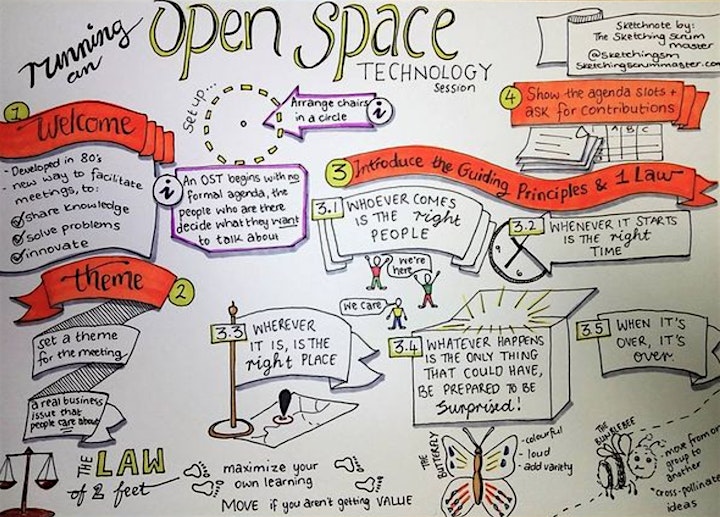 running
an
Open Space
TECHNOLOGY
session
Sketchnote by:
The Sketching Scrum
master
@sketchingsm
sketchingscrummaster.com
1
Welcome
- Developed in 80's
- new way to facilitate
meetings, to:
share knowledge
solve problems
innovate
set up...
Arrange chairs
in a circle
i
i
An OST begins with no
formal agenda, the
people who are there
decide what they want
to talk about
2
theme
set a theme
for the meeting
a real business
issue that
people care about
3
Introduce the Guiding Principles & 1 Law
3.1
WHOEVER COMES
IS THE right
PEOPLE
we're
here
we care
3.2
WHENEVER IT STARTS
IS THE right
TIME
12
9
6
3.3
WHEREVER
IT IS, IS THE
right PLACE
3.4
WHATEVER HAPPENS
IS THE ONLY THING
THAT COULD HAVE,
BE PREPARED TO BE
surprised!
3.5
WHEN IT'S
OVER, IT'S
over.
4
Show the agenda slots +
ask for contributions
A B C
THE LAW
of 2 feet
maximize your
own learning
MOVE if you aren't getting VALUE
THE
BUTTERFLY
- colourful
- loud
- add variety
THE
BUMBLEBEE
- move from one
group to
another
- cross-pollinate
ideas